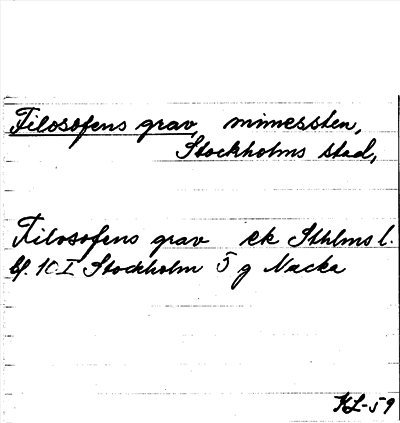 Filosofens grav, minnessten,
Stockholms stad,
Filosofens grav ek Sthlms l.
bl. 10 I Stockholm 5 g Nacka
KL-59